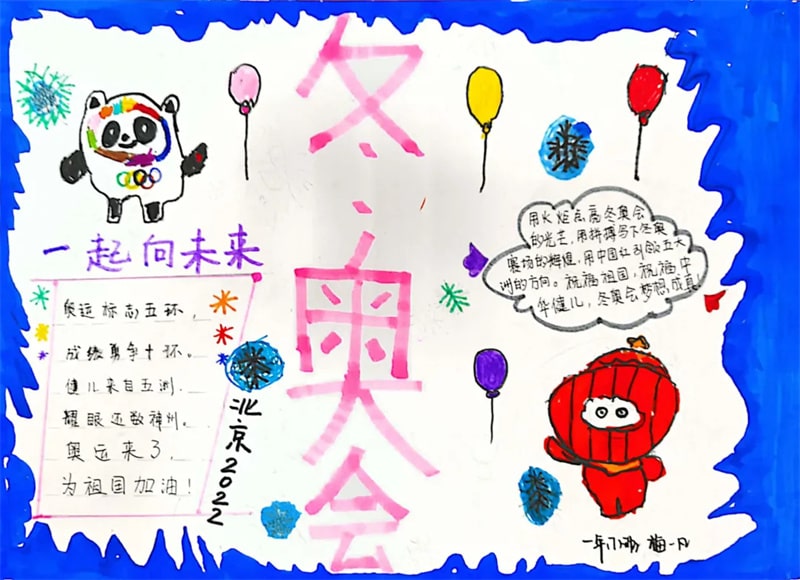 冬奥会
一起向未来
奥运标志五环，
成绩勇争十环。
健儿来自五洲，
耀眼还数神州。
奥运来了，
为祖国加油！
北京2022
用火炬点亮冬奥会
的光芒，用拼搏写下冬奥
赛场的辉煌，用中国红引领五大
洲的方向。祝福祖国，祝福中
华健儿，冬奥会梦想成真
一年 梅一凡